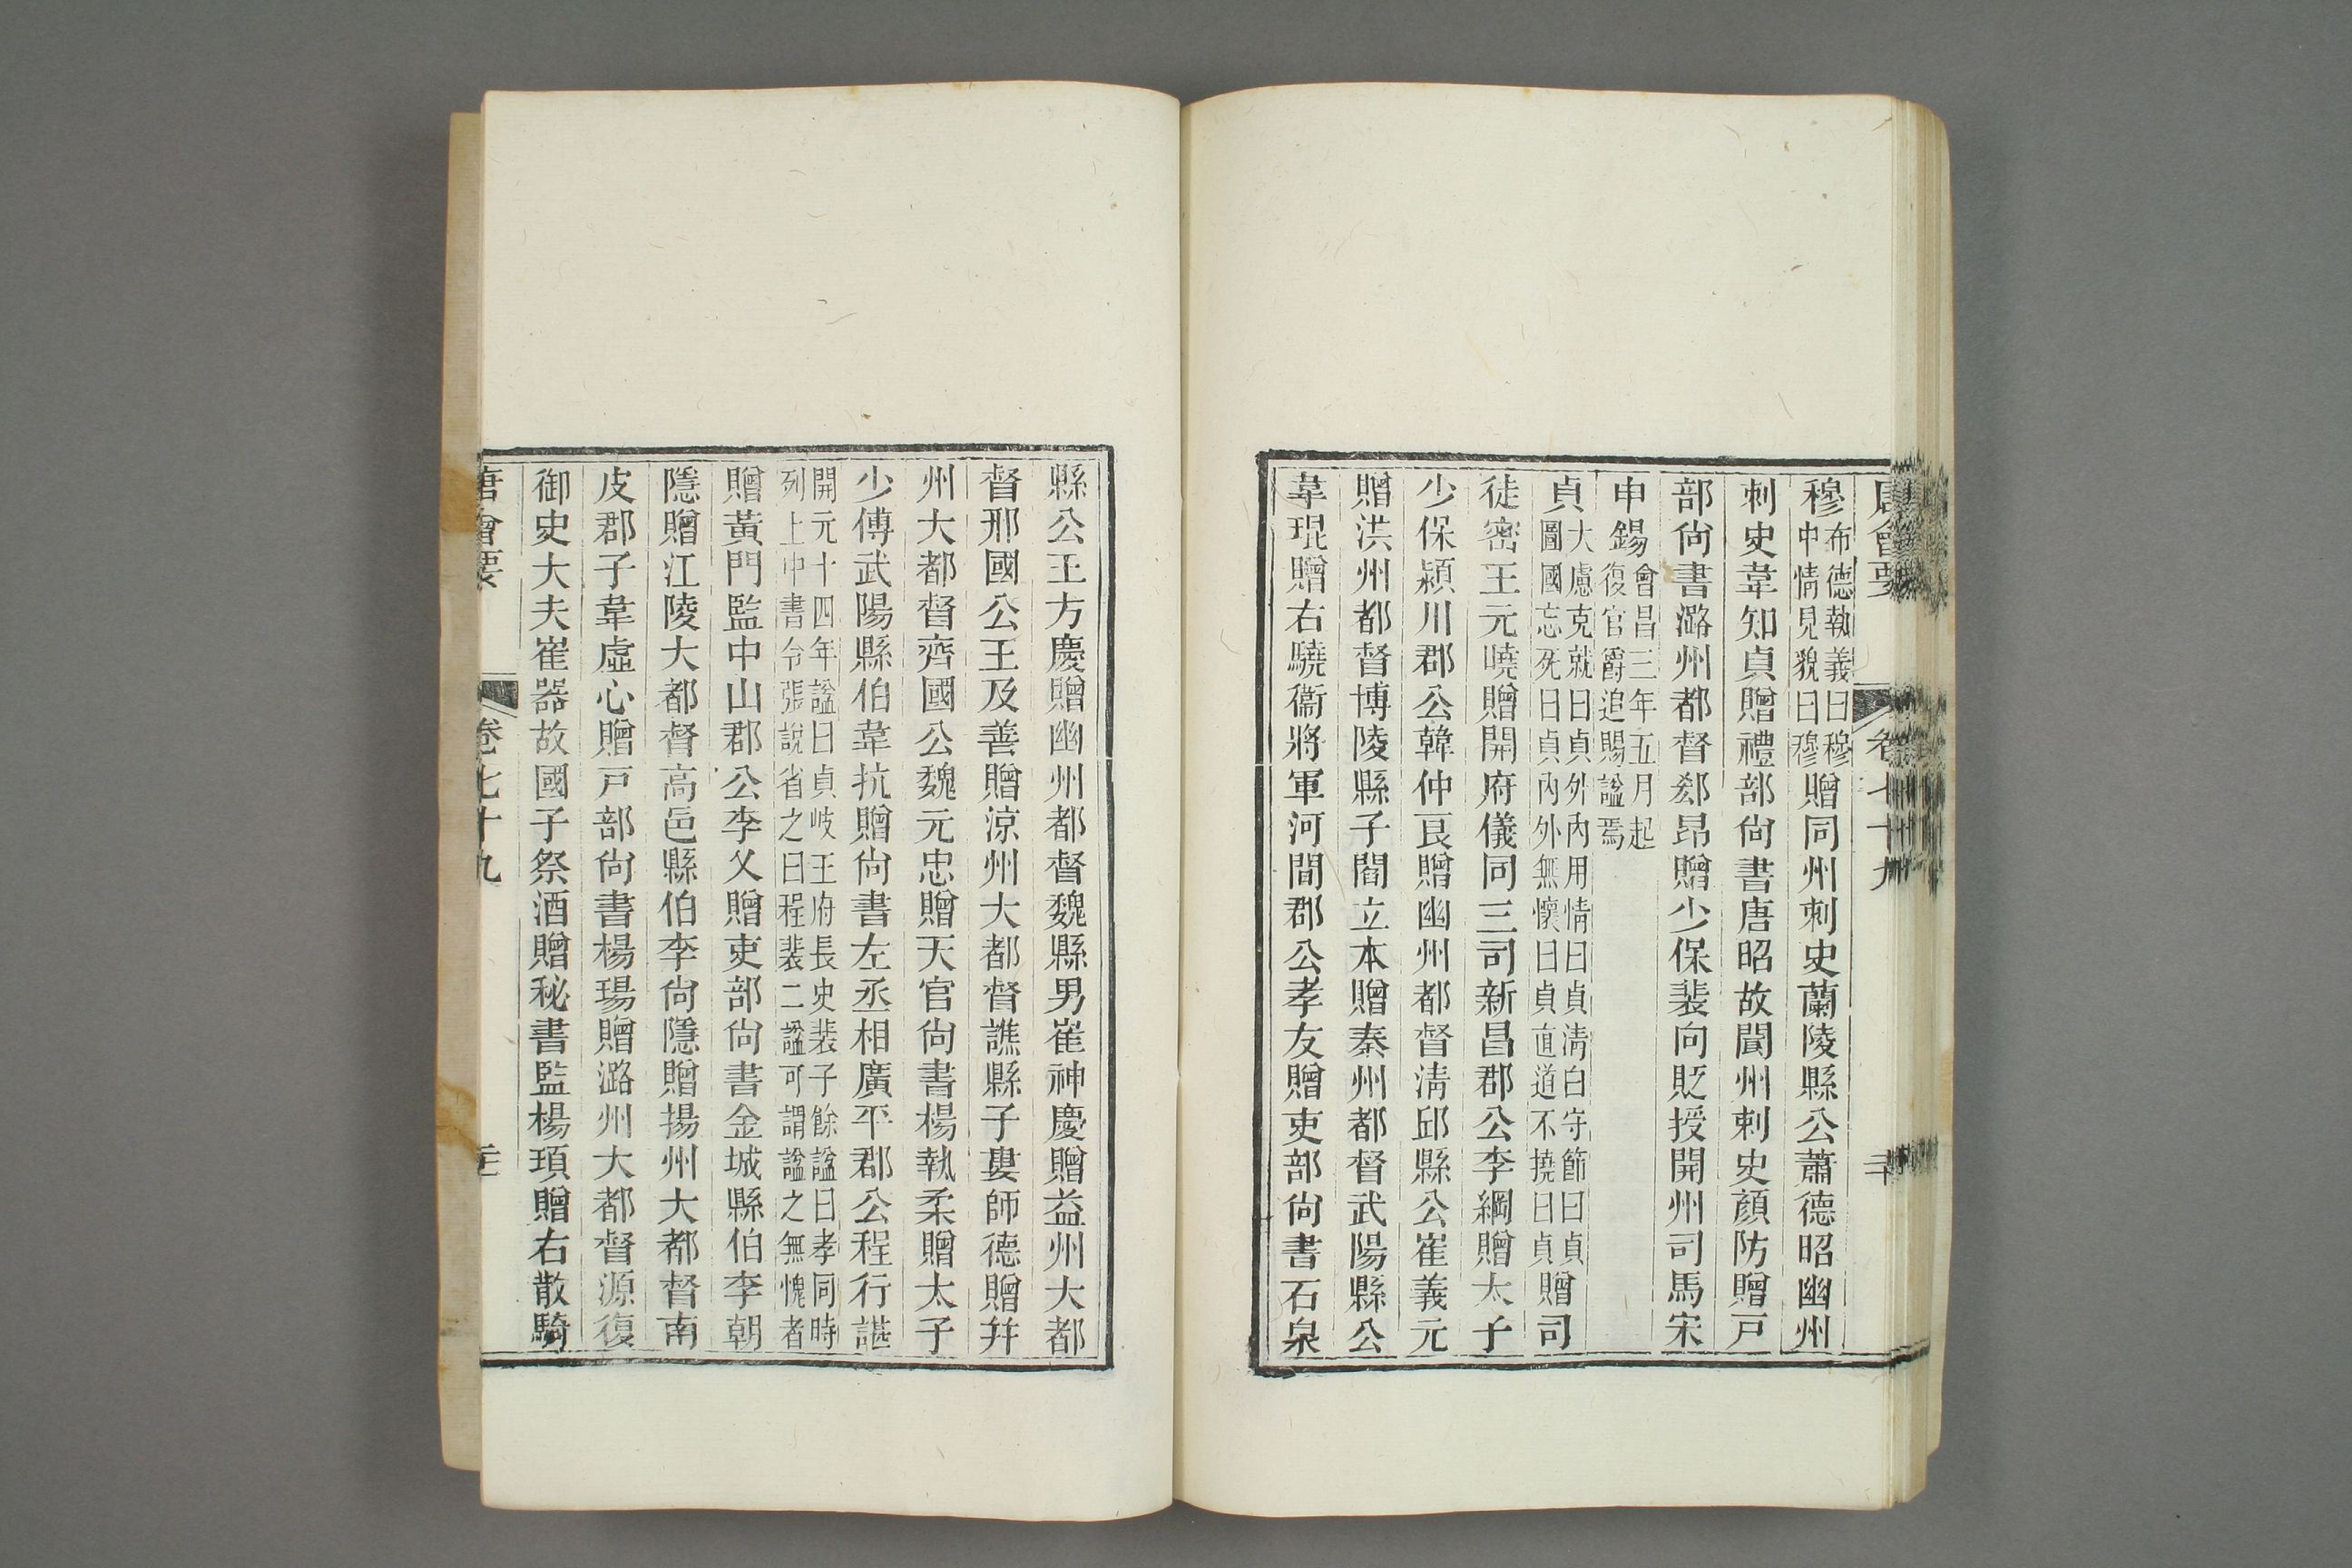 唐會要 卷七十九 二十
穆布德執義曰穆中情見貌曰穆贈同州刺史蘭陵縣公蕭德昭幽州
刺史韋知貞贈禮部尙書唐昭故閬州刺史顏防贈戸
部尙書潞州都督郄昂贈少保裴向貶授開州司馬宋
申錫會昌三年五月起復官爵追賜諡焉
貞大慮克就曰貞外內用情曰貞淸白守節曰貞圖國忘死曰貞內外無懷曰貞直道不撓曰貞贈司
徒密王元曉贈開府儀同三司新昌郡公李綱贈太子
少保潁川郡公韓仲良贈幽州都督淸邱縣公崔義元
贈洪州都督博陵縣子閻立本贈秦州都督武陽縣公
韋琨贈右驍衞將軍河間郡公孝友贈吏部尙書石泉
縣公王方慶贈幽州都督魏縣男崔神慶贈益州大都
督邢國公王及善贈涼州大都督譙縣子婁師德贈幷
州大都督齊國公魏元忠贈天官尙書楊執柔贈太子
少傅武陽縣伯韋抗贈尙書左丞相廣平郡公程行諶
開元十四年諡曰貞岐王府長史裴子餘諡曰孝同時列上中書令張說省之曰程裴二諡可謂諡之無愧者
贈黃門監中山郡公李乂贈吏部尙書金城縣伯李朝
隱贈江陵大都督高邑縣伯李尙隱贈揚州大都督南
皮郡子韋虛心贈戸部尙書楊瑒贈潞州大都督源復
御史大夫崔器故國子祭酒贈秘書監楊頊贈右散騎
唐會要 卷七十九